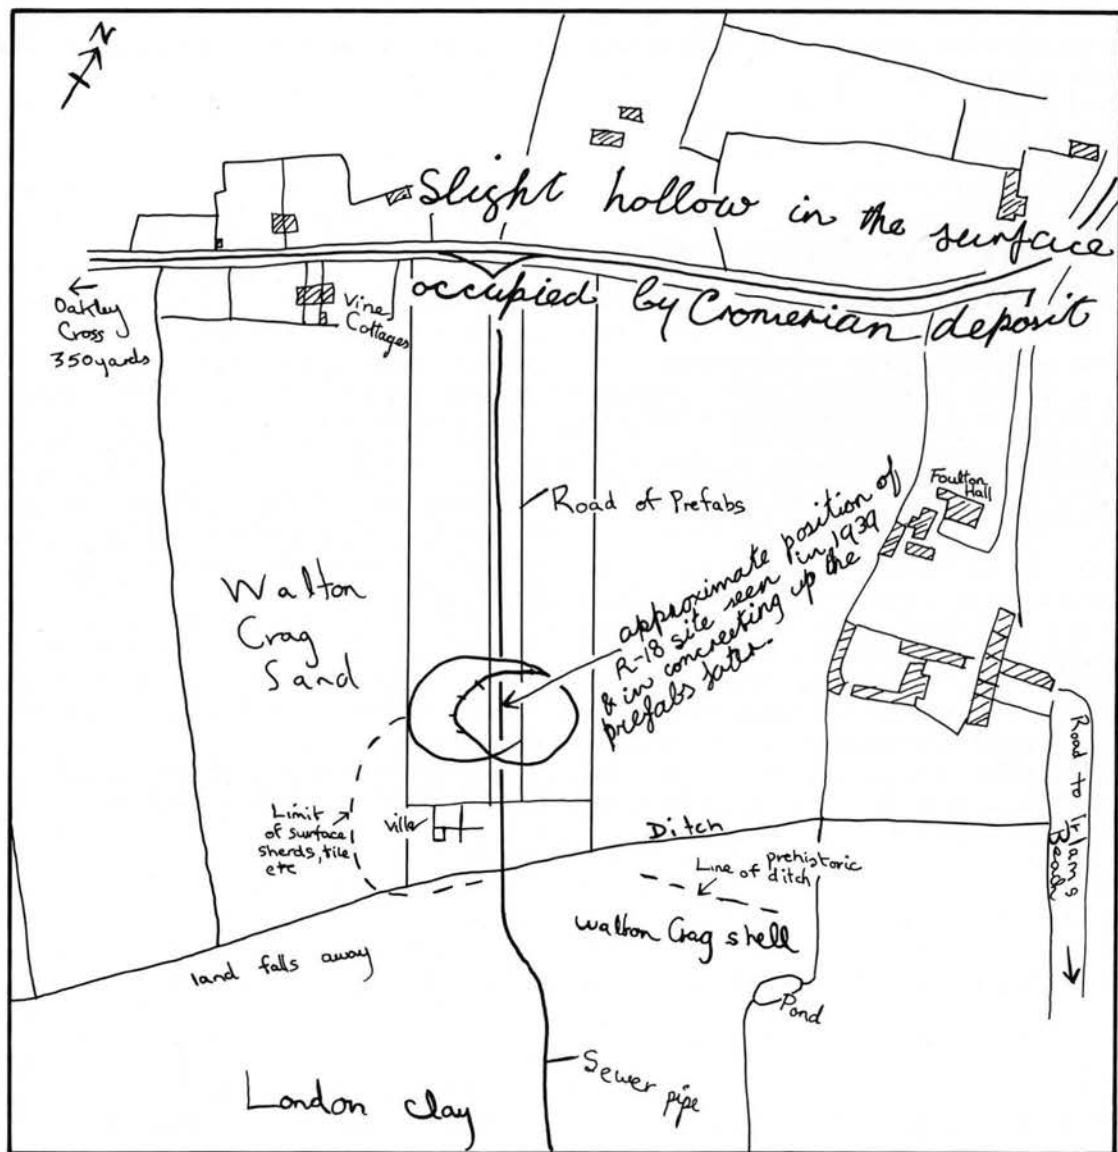 N
Slight hollow in the surface
occupied by Cromerian deposit
Oakley
Cross
350 yards
Vine
Cottages
Road of Prefabs
Foulton
Hall
approximate position of
R-18 site seen in 1939
& in concreeting up the
prefabs later.
Walton
Crag
Sand
Limit
of surface
sherds, tile
etc
Villa
Ditch
Line of prehistoric
ditch
Walton Crag shell
Road to
Beach
land falls away
Pond
Sewer pipe
London Clay